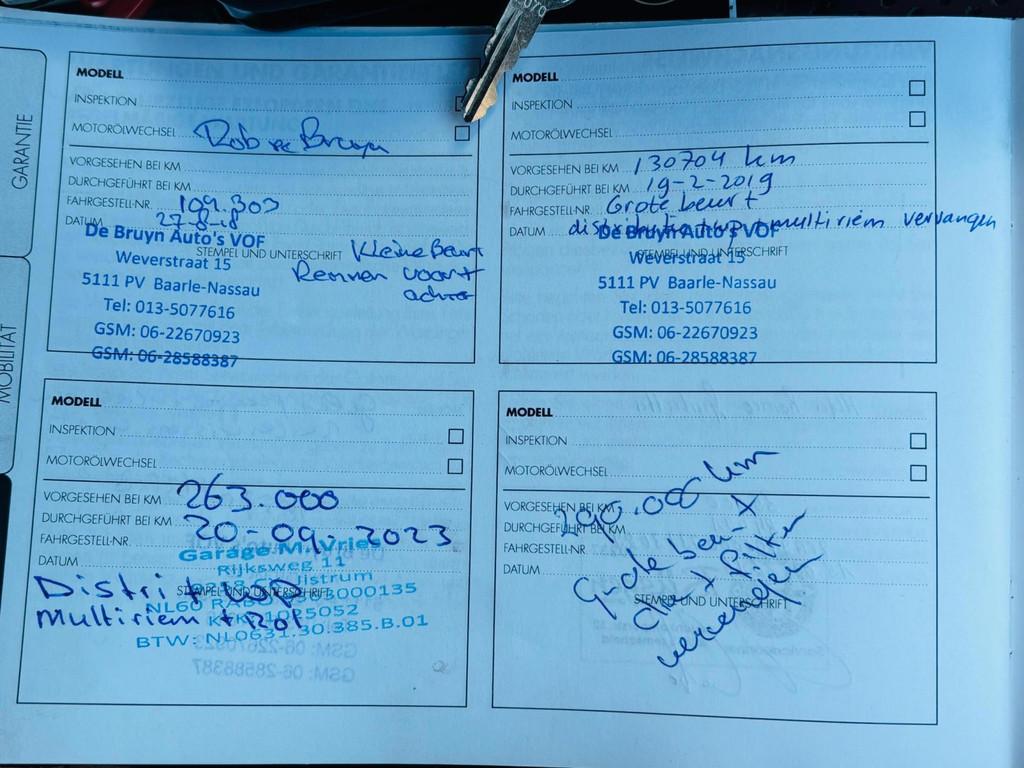 GARANTIE
MOBILITÄT
MODELL
INSPEKTION
MOTORÖLWECHSEL Rob de Bruyn
VORGESEHEN BEI KM
DURCHGEFÜHRT BEI KM
FAHRGESTELL-NR. 109.303
DATUM 27-8-18
De Bruyn Auto's VOF
STEMPEL UND UNTERSCHRIFT Kleine Beurt
Weverstraat 15
Remmen voor +
5111 PV Baarle-Nassau
achter
Tel: 013-5077616
GSM: 06-22670923
GSM: 06-28588387
MODELL
INSPEKTION
MOTORÖLWECHSEL
VORGESEHEN BEI KM 130704 km
DURCHGEFÜHRT BEI KM 19-2-2019
FAHRGESTELL-NR. Grote beurt
DATUM multiriem vervangen
De Bruyn Auto's VOF
STEMPEL UND UNTERSCHRIFT
Weverstraat 15
5111 PV Baarle-Nassau
Tel: 013-5077616
GSM: 06-22670923
GSM: 06-28588387
MODELL
INSPEKTION
MOTORÖLWECHSEL
VORGESEHEN BEI KM 263.000
DURCHGEFÜHRT BEI KM 20-09-2023
FAHRGESTELL-NR.
Garage M. Vries
DATUM
Rijksweg 11
Distri + WP
STEMPEL UND UNTERSCHRIFT
Multiriem + Rol
BTW: NL0631.30.385.B.01
MODELL
INSPEKTION
MOTORÖLWECHSEL
VORGESEHEN BEI KM 290.000 km
DURCHGEFÜHRT BEI KM
FAHRGESTELL-NR.
DATUM
STEMPEL UND UNTERSCHRIFT